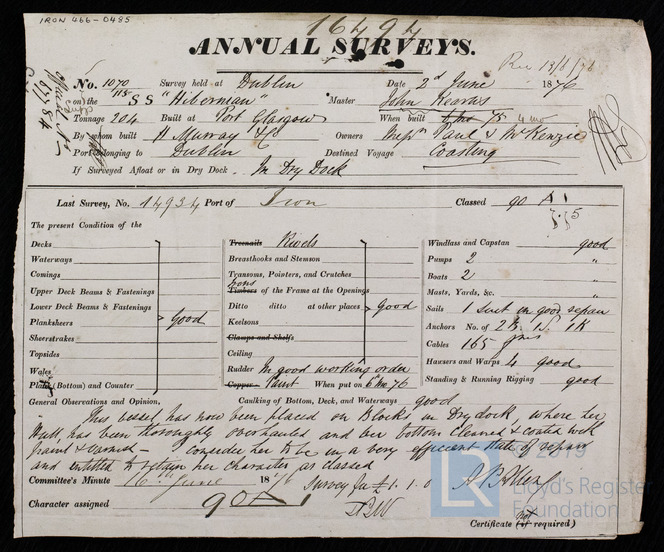 IRON 466-0485
16494
ANNUAL SURVEYS.
Rec 13/6/76
No. 1070 Survey held at Dublin Date 2d June 1876
115
on the SS "Hibernian" Master John Kearns
Tonnage 204 Built at Port Glasgow When built /75 4 mo
By whom built H Murray & Co Owners Paul & McKenzie
Port belonging to Dublin Destined Voyage Coasting
If Surveyed Afloat or in Dry Dock. In Dry Dock
Last Survey, No. 14934 Port of Iron Classed 90 A1
5.75
The present Condition of the
Decks
Waterways
Comings
Upper Deck Beams & Fastenings
Lower Deck Beams & Fastenings
Planksheers
Sheerstrakes
Topsides
Wales
Plank (Bottom) and Counter
good
Treenails Rivets
Breasthooks and Stemson
Transons, Pointers, and Crutches
Irons
Timbers of the Frame at the Openings
Ditto ditto at other places
Keelsons
Clamps and Shelfs
Ceiling
good
Rudder In good working order
Copper Paint When put on 6 mo 76
Windlass and Capstan good
Pumps 2 "
Boats 2 "
Masts, Yards, &c. "
Sails 1 Suit in good repair
Anchors No. of 2 B. 1 S. 1 K
Cables 165 fms
Hawsers and Warps 4 good
Standing & Running Rigging good
General Observations and Opinion, Caulking of Bottom, Deck, and Waterways good
This vessel has now been placed on Blocks in Dry dock, where her
Hull has been thoroughly overhauled and her bottom cleaned & coated with
paint & — I consider her to be in a very efficient state of repair
and entitled to retain her character as classed
Committee's Minute 16th June 1876 Survey fee £1.1.0
Character assigned 90 A 1
Certificate (if not required)
© 2019
LR
Lloyd's Register
Foundation